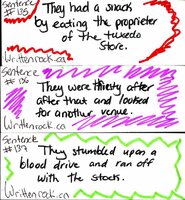 Sentence
#135
They had a snack
by eating the proprieter
of the tuxedo
store.
Writtenrock.ca
Sentence
#136
They were thirsty after
after that and looked
for another venue.
Writtenrock.ca
Sentence
#137
They stumbled upon a
blood drive and ran off
with the stocks.
Writtenrock.ca